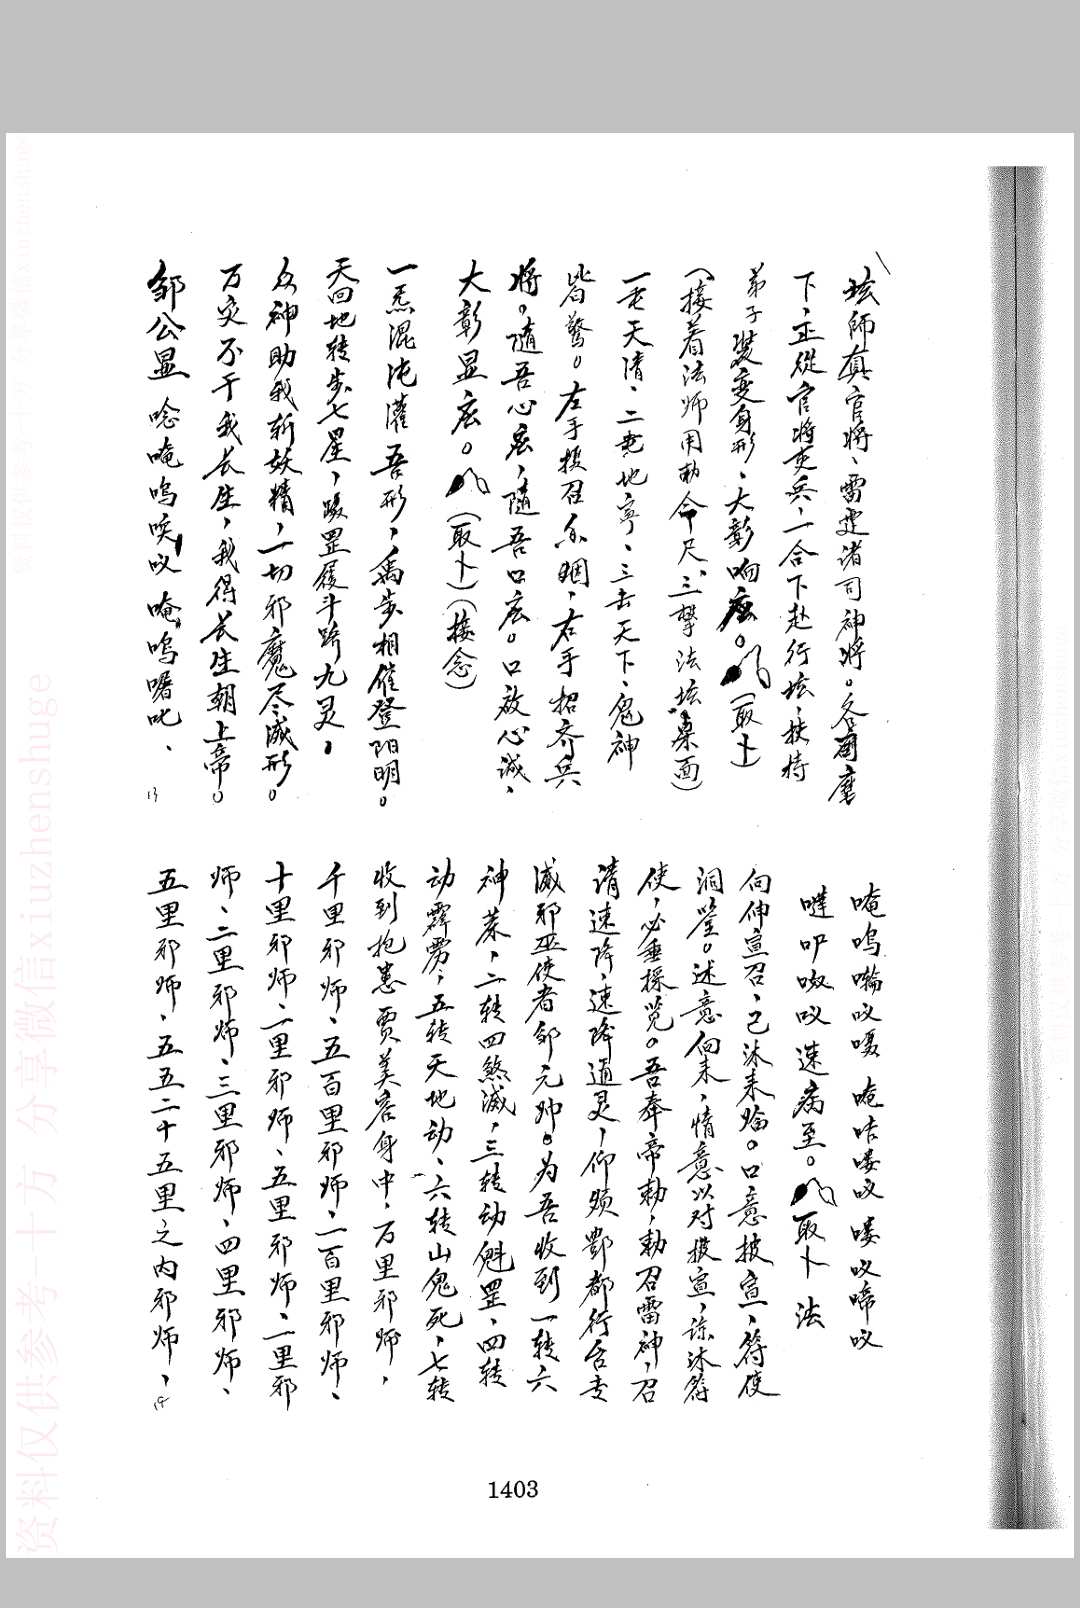 坛師真官將、雷霆诸司神將。各
下、正從官將吏兵、一合下赴行坛、扶持
弟子装变身形、大彰响应。(取卜)
(接着法师用勅令尺、三擊法坛桌面)
一击天清、二击地寧、三击天下、鬼神
皆驚。左手 召 ，右手招齐兵
將。隨吾心应，隨吾口应。口啟心诚、
大彰显应。(取卜)(接念)
一炁混沌灌吾形，禹步相催登阳明。
天回地转步七星，蹑罡履斗跻九灵，
众神助我斩妖精，一切邪魔尽滅形。
万灾不干我长生，我得长生朝上帝。
邹公显 唸唵嗚 吺 唵嗚囑叱、
13
唵嗚 吺 唵咕嘍吺 嘍吺啼吺
噠吖 吺速病至。取卜 法
向伸宣召、已沐来临。口意披宣、符使
洞鉴。述意向来，情意以对披宣，谅沐符
使，必垂採览。吾奉帝勅，勅召雷神，召
请速降，速降通灵，仰烦酆都行台 
滅邪巫使者邹元帅。为吾收到一转六
神藏，二转四煞滅，三转动魁罡、四转
动霹雳，五转天地动、六转山鬼死，七转
收到抱患贾美 身中，万里邪师，
千里邪师、五百里邪师、一百里邪师、
十里邪师、二里邪师、五里邪师、一里邪
师、二里邪师、三里邪师、四里邪师、
五里邪师、五五二十五里之内邪师、
14
1403
资料仅供参考 十方 分享微信xiuzhenshuge